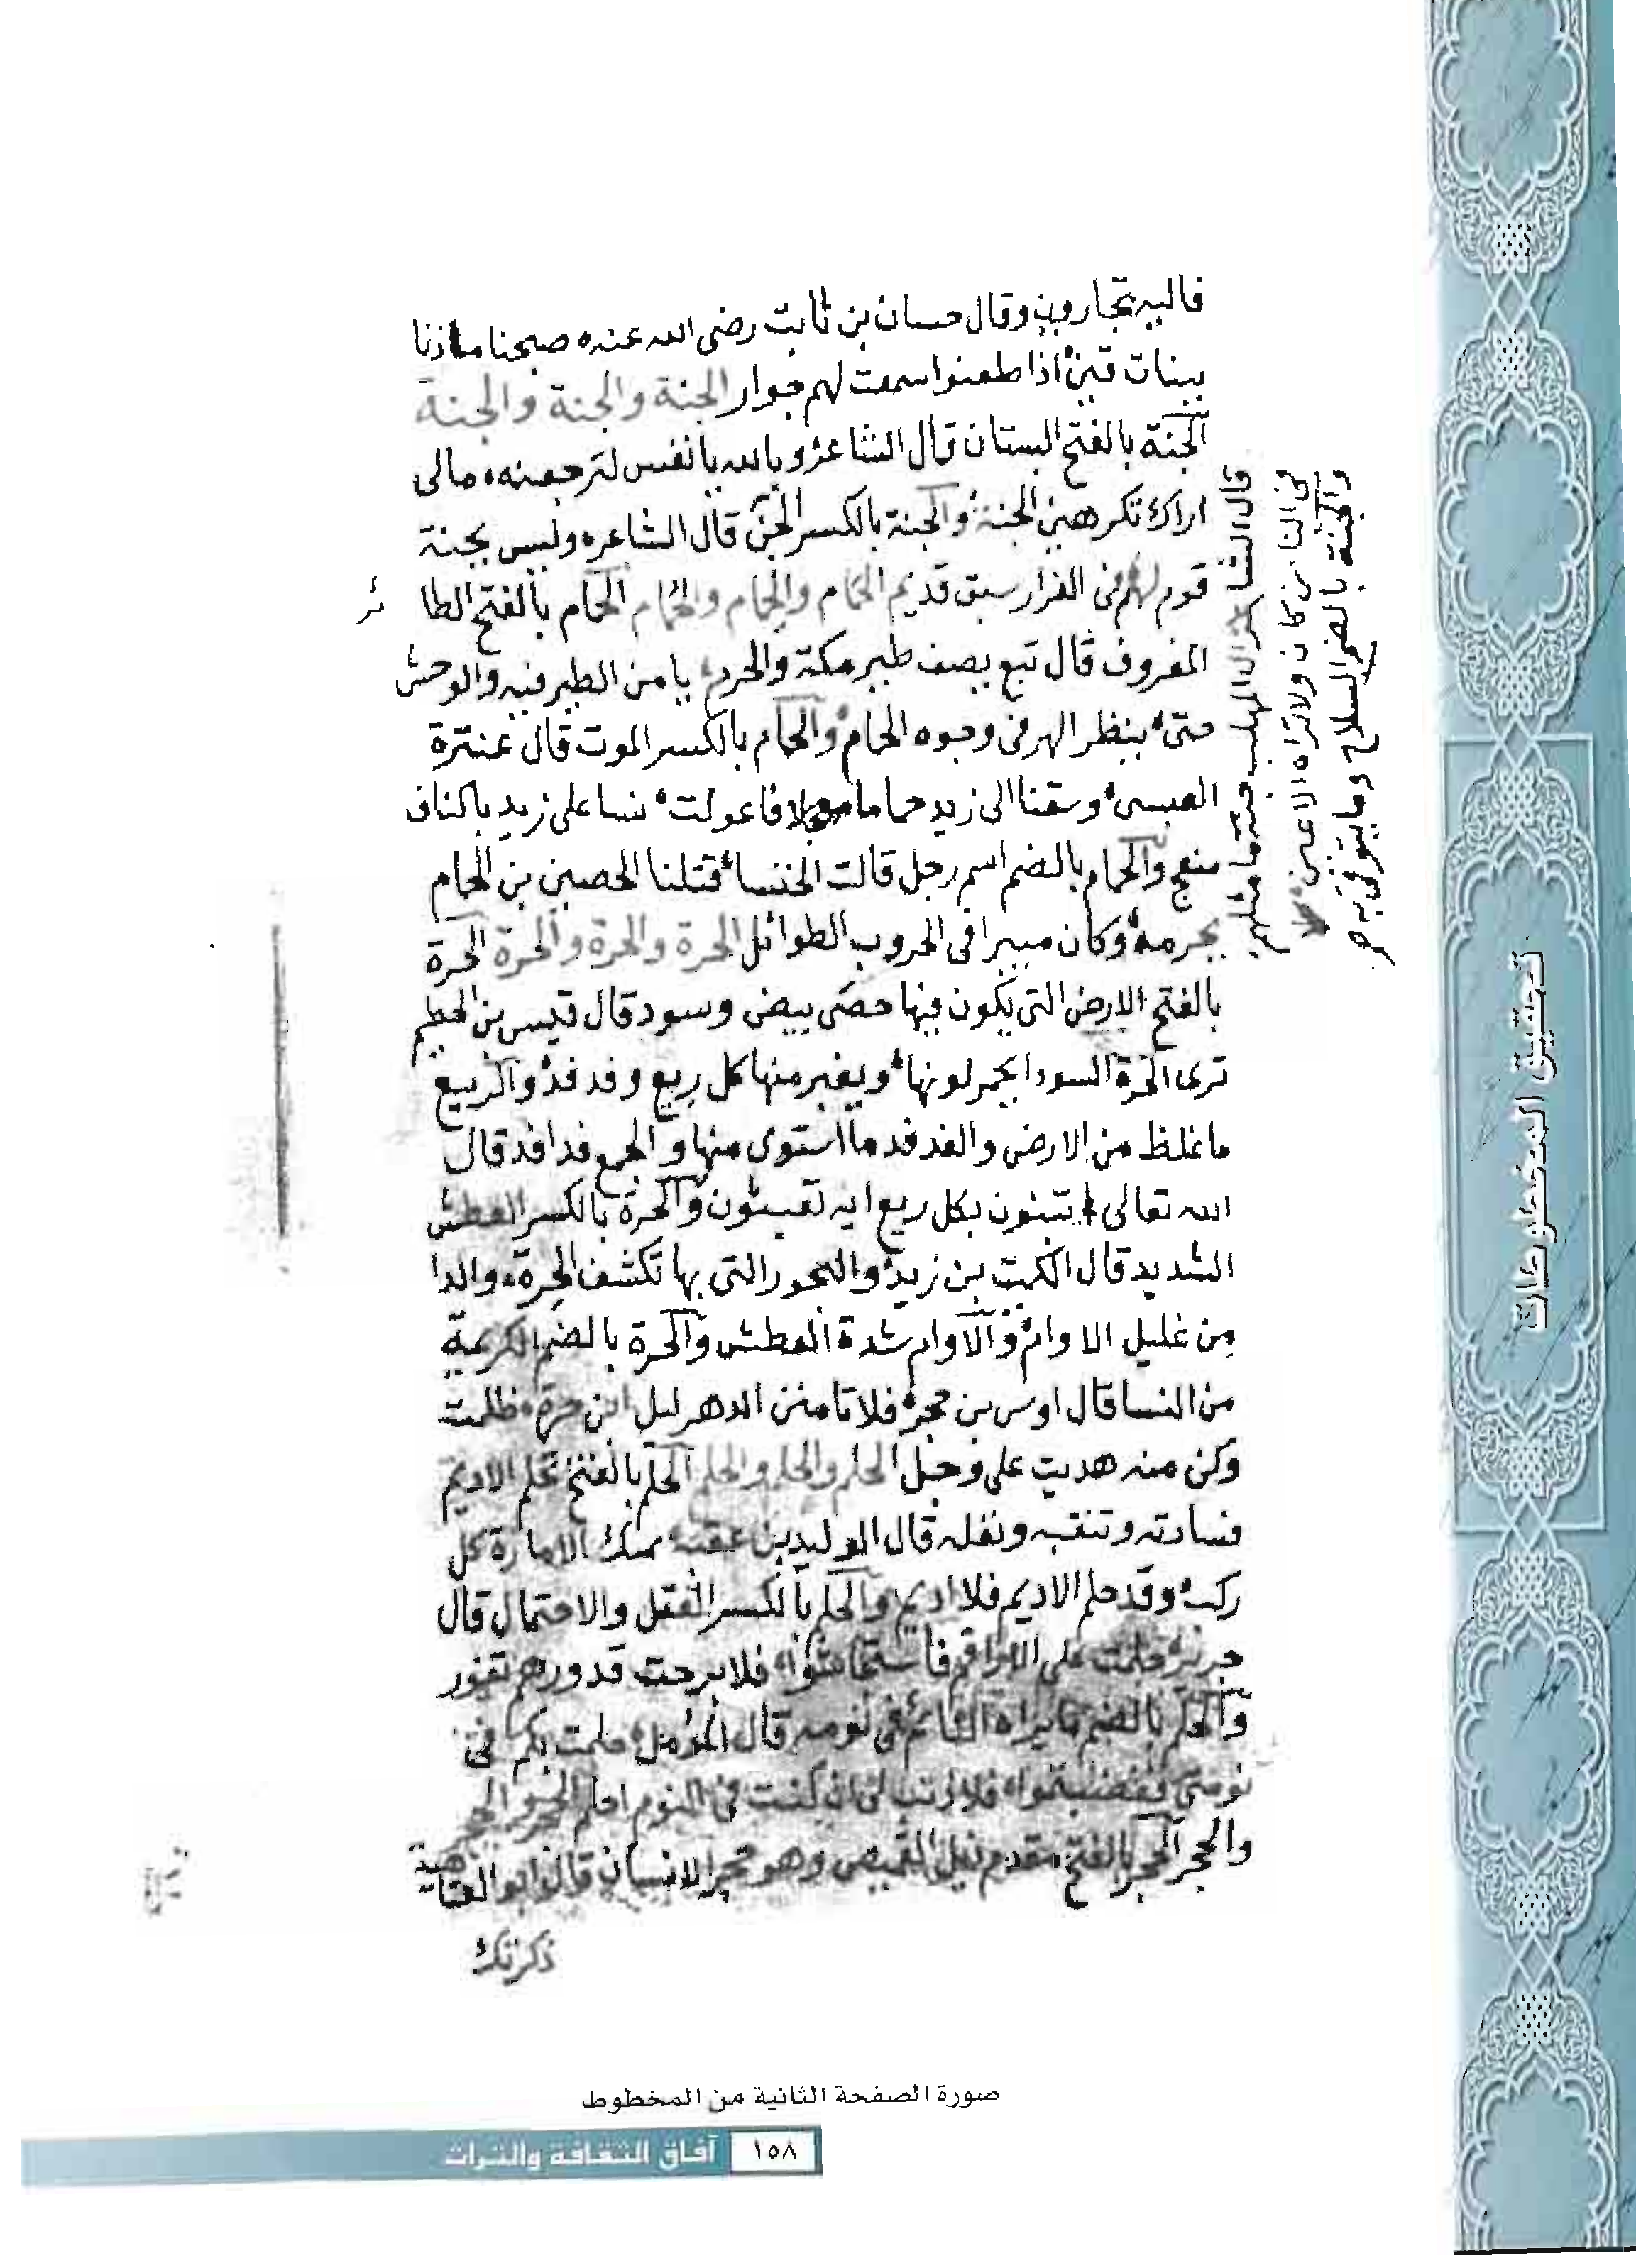 فاليه تجارون وقال حسان بن ثابت رضي الله عنه ه صبحنا ماذنا
ببنات قين ه اذا طعنوا سمعت لهم جوار الجنة والجنة والجنة
الجنة بالفتح البستان قال الشاعر ه وبالله يا نفس لترجعنه ه مالي
اراك تكرهين الجنة ه والجنة بالكسر الجن قال الشاعر ه وليس بجنة
قوم لهم في الفرار سبق قديم الحمام والحمام والحمام الحمام بالفتح الطائر
المعروف قال تبع يصف طير مكة والحرم ه يا من الطير فيه والوحش
حتى ه ينظر الهر في وجوه الحمام ه والحمام بالكسر الموت قال عنترة
العبسي ه وسقنا الى زيد حماما فاعولت ه نسا على زيد باكناف
منعج والحمام بالضم اسم رجل قالت الخنسا ه قتلنا الحصين بن الحمام
بجرمه ه وكان مبيرا في الحروب الطوائل الحرة والحرة والحرة الحرة
بالفتح الارض التي يكون فيها حصى بيض وسود قال قيس بن الخطيم
ترى الحرة السودا يحمر لونها ه ويغبر منها كل ريع وفدفد ه والريع
ما غلظ من الارض والفدفد ما استوى منها والجمع فدافد قال
الله تعالى اتبنون بكل ريع اية تعبثون والحرة بالكسر العطش
الشديد قال الكميت بن زيد ه والبحور التي بها تكشف الحرة ه والدا
من غليل الاوام ه والاوام شدة العطش والحرة بالضم الكريمة
من النسا قال اوس بن حجر ه فلا تامنن الدهر ليل ابن حرة ه ظلمت
وكن منه هديت على وجل الحلم والحلم والحلم الحلم بالفتح تحلم الاديم
فسادته وتنقبه ونغله قال الوليد بن عقبة ه الامارة كل
ركب ه وقد حلم الاديم فلا اديم والحلم بالكسر العقل والاحتمال قال
جرير ه حلمت على الاراقم فاستجاشوا ه فلا برحت قدورهم تفور
والحلم بالضم ما يراه النائم في نومه قال المؤمل ه حلمت بكم في
نومتي فغضبتموا ه فلا ذنب لي ان كنت في النوم احلم الحجر الحجر
والحجر الحجر بالفتح مقدم ذيل القميص وهو حجر الانسان قال ابو العتاهية
ذكرتك
والجنة بالضم السلاح وما يتوقى به
في الناس كان ولا تراه الاعين
قال الشا
تحقيق المخطوطات
صورة الصفحة الثانية من المخطوط
١٥٨ آفاق الثقافة والتراث